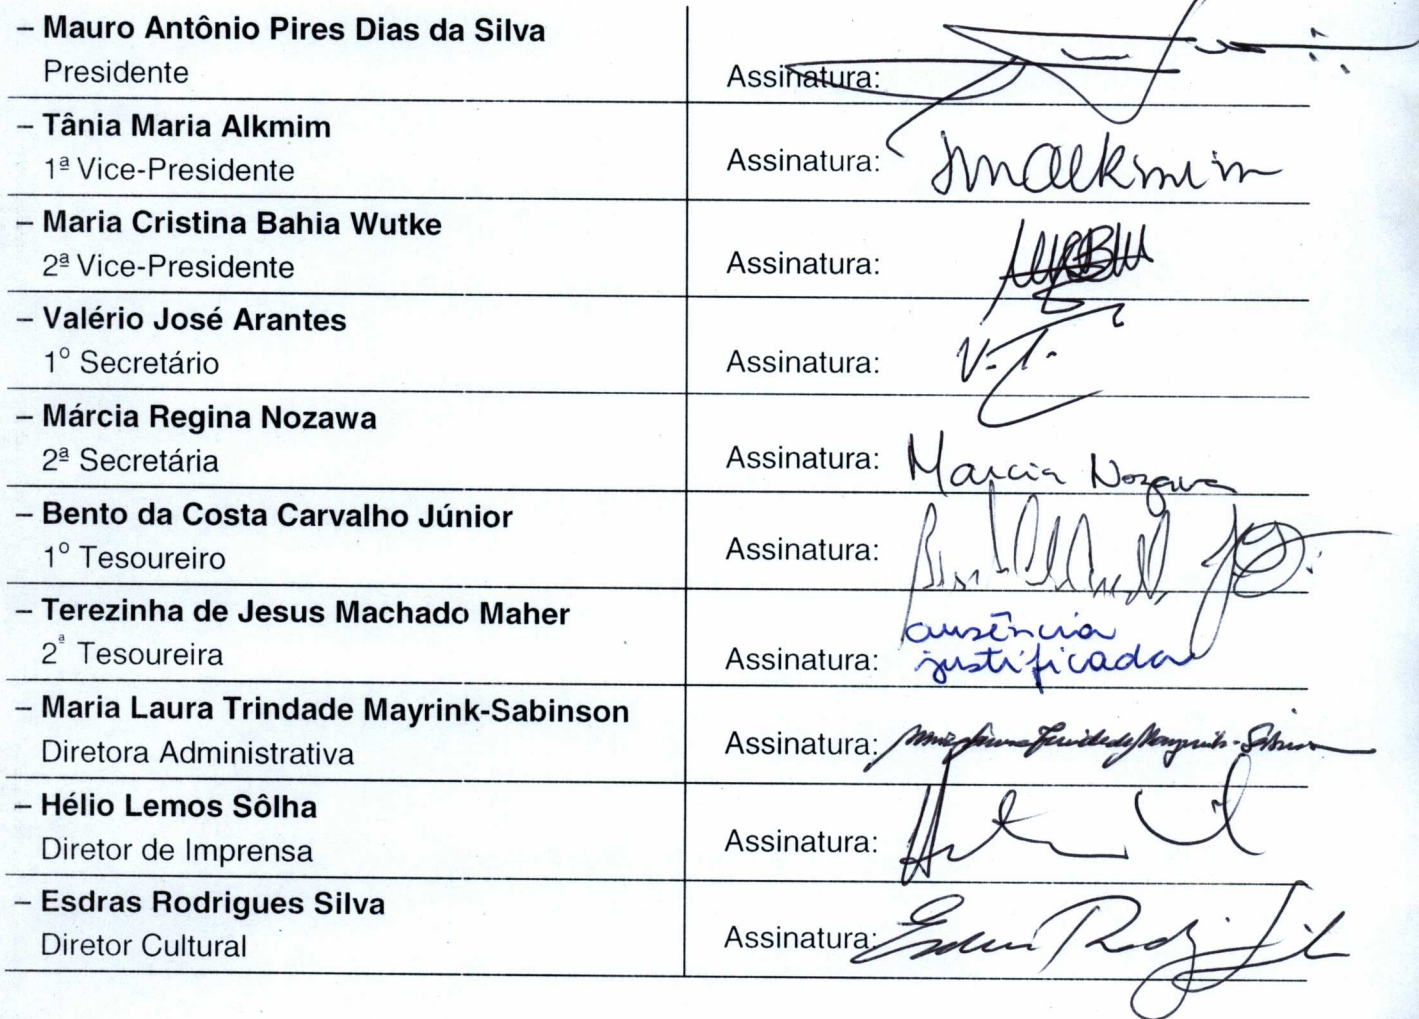 – Mauro Antônio Pires Dias da Silva
Presidente
Assinatura:
– Tânia Maria Alkmim
1ª Vice-Presidente
Assinatura: TMAlkmim
– Maria Cristina Bahia Wutke
2ª Vice-Presidente
Assinatura:
– Valério José Arantes
1º Secretário
Assinatura:
– Márcia Regina Nozawa
2ª Secretária
Assinatura: Marcia Nozawa
– Bento da Costa Carvalho Júnior
1º Tesoureiro
Assinatura:
– Terezinha de Jesus Machado Maher
2ª Tesoureira
ausência
Assinatura: justificada
– Maria Laura Trindade Mayrink-Sabinson
Diretora Administrativa
Assinatura: Maria Laura Trindade Mayrink-Sabinson
– Hélio Lemos Sôlha
Diretor de Imprensa
Assinatura:
– Esdras Rodrigues Silva
Diretor Cultural
Assinatura: